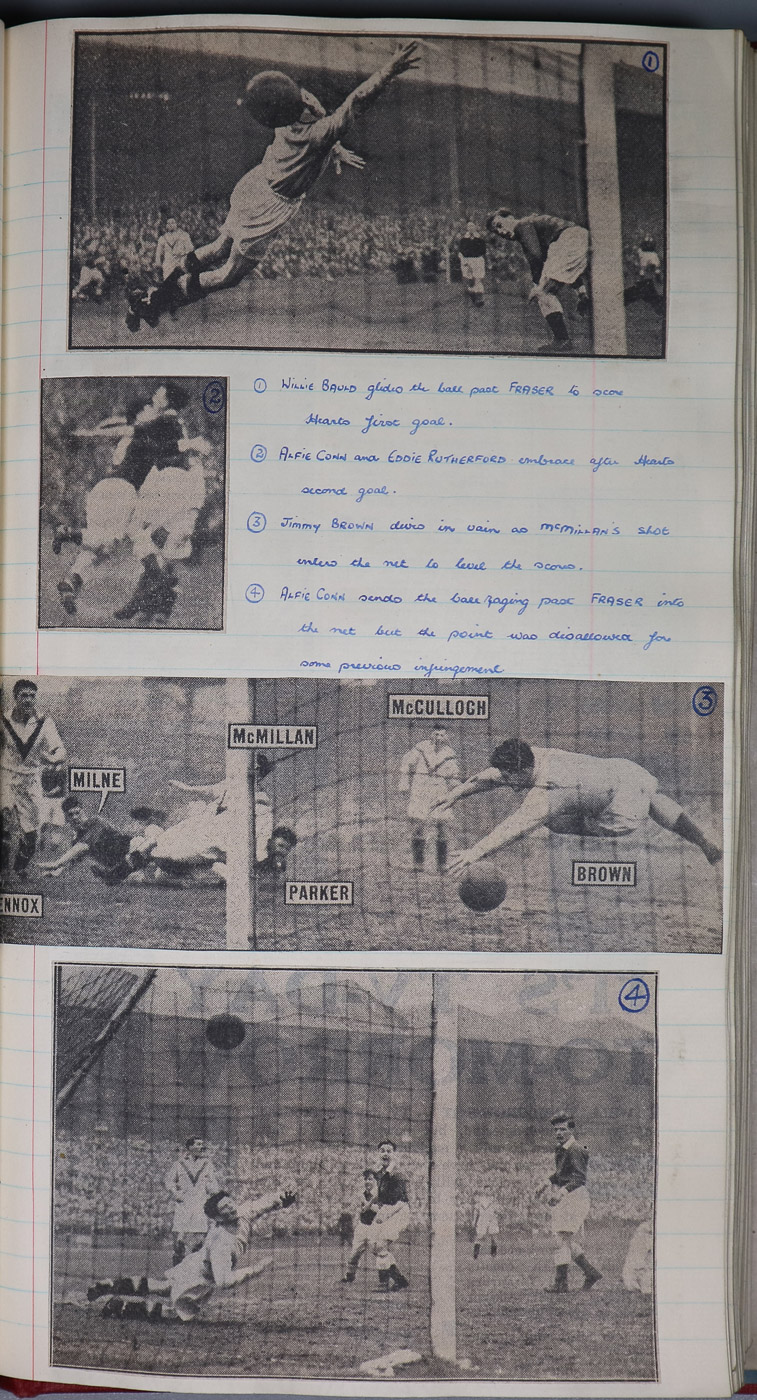 1
① WILLIE BAULD glides the ball past FRASER to score
Hearts first goal.
2
② ALFIE CONN and EDDIE RUTHERFORD embrace after Hearts
second goal.
③ Jimmy BROWN dives in vain as McMILLAN'S shot
enters the net to level the scores.
④ ALFIE CONN sends the ball zaging past FRASER into
the net but the point was disallowed for
some previous infringement
3
McCULLOCH
McMILLAN
MILNE
BROWN
PARKER
ENNOX
4